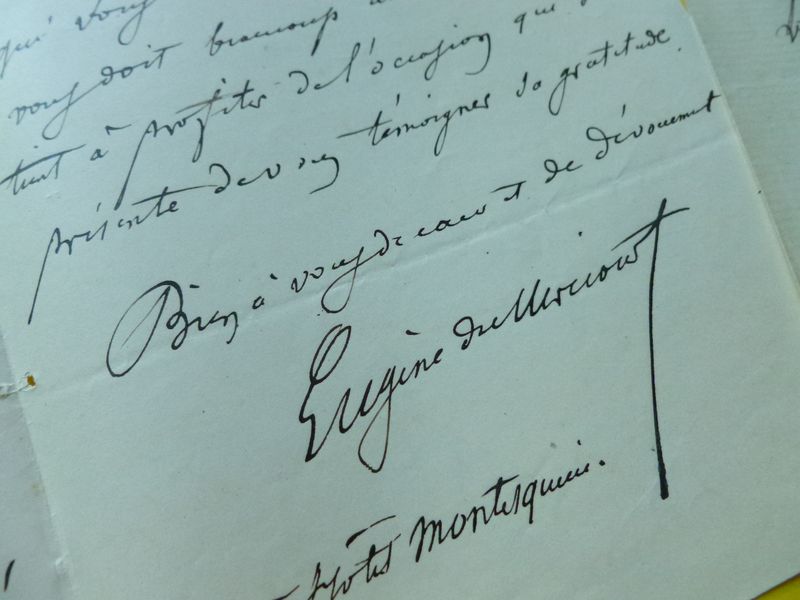 qui vous
vous doit beaucoup
tient à profiter de l'occasion qui
présente de vous témoigner sa gratitude.
Bien à vous de cœur et de dévouement
Eugène de Mirecourt
hôtel Montesquieu.